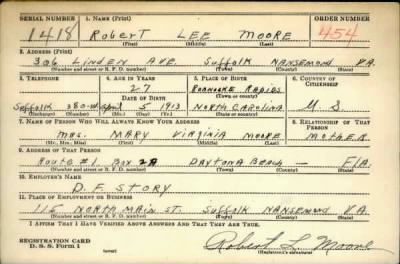 SERIAL NUMBER 1. NAME (Print) ORDER NUMBER
1418 ROBERT LEE MOORE 454
(First) (Middle) (Last)
2. ADDRESS (Print)
306 LINDEN AVE. SUFFOLK NANSEMOND VA.
(Number and street or R. F. D. number) (Town) (County) (State)
3. TELEPHONE 4. AGE IN YEARS 5. PLACE OF BIRTH 6. COUNTRY OF CITIZENSHIP
27 ROANOKE RAPIDS
DATE OF BIRTH (Town or county)
SUFFOLK 380-W April 5 1913 NORTH CAROLINA U S
(Exchange) (Number) (Mo.) (Day) (Yr.) (State or country)
7. NAME OF PERSON WHO WILL ALWAYS KNOW YOUR ADDRESS 8. RELATIONSHIP OF THAT PERSON
MRS. MARY VIRGINIA MOORE MOTHER
(Mr., Mrs., Miss) (First) (Middle) (Last)
9. ADDRESS OF THAT PERSON
ROUTE #1 BOX 28 DAYTONA BEACH — FLA.
(Number and street or R. F. D. number) (Town) (County) (State)
10. EMPLOYER'S NAME
D. F. STORY
11. PLACE OF EMPLOYMENT OR BUSINESS
115 NORTH MAIN ST. SUFFOLK NANSEMOND VA.
(Number and street or R. F. D. number) (Town) (County) (State)
I AFFIRM THAT I HAVE VERIFIED ABOVE ANSWERS AND THAT THEY ARE TRUE.
REGISTRATION CARD
D. S. S. Form 1 (over) Robert L. Moore
(Registrant's signature)